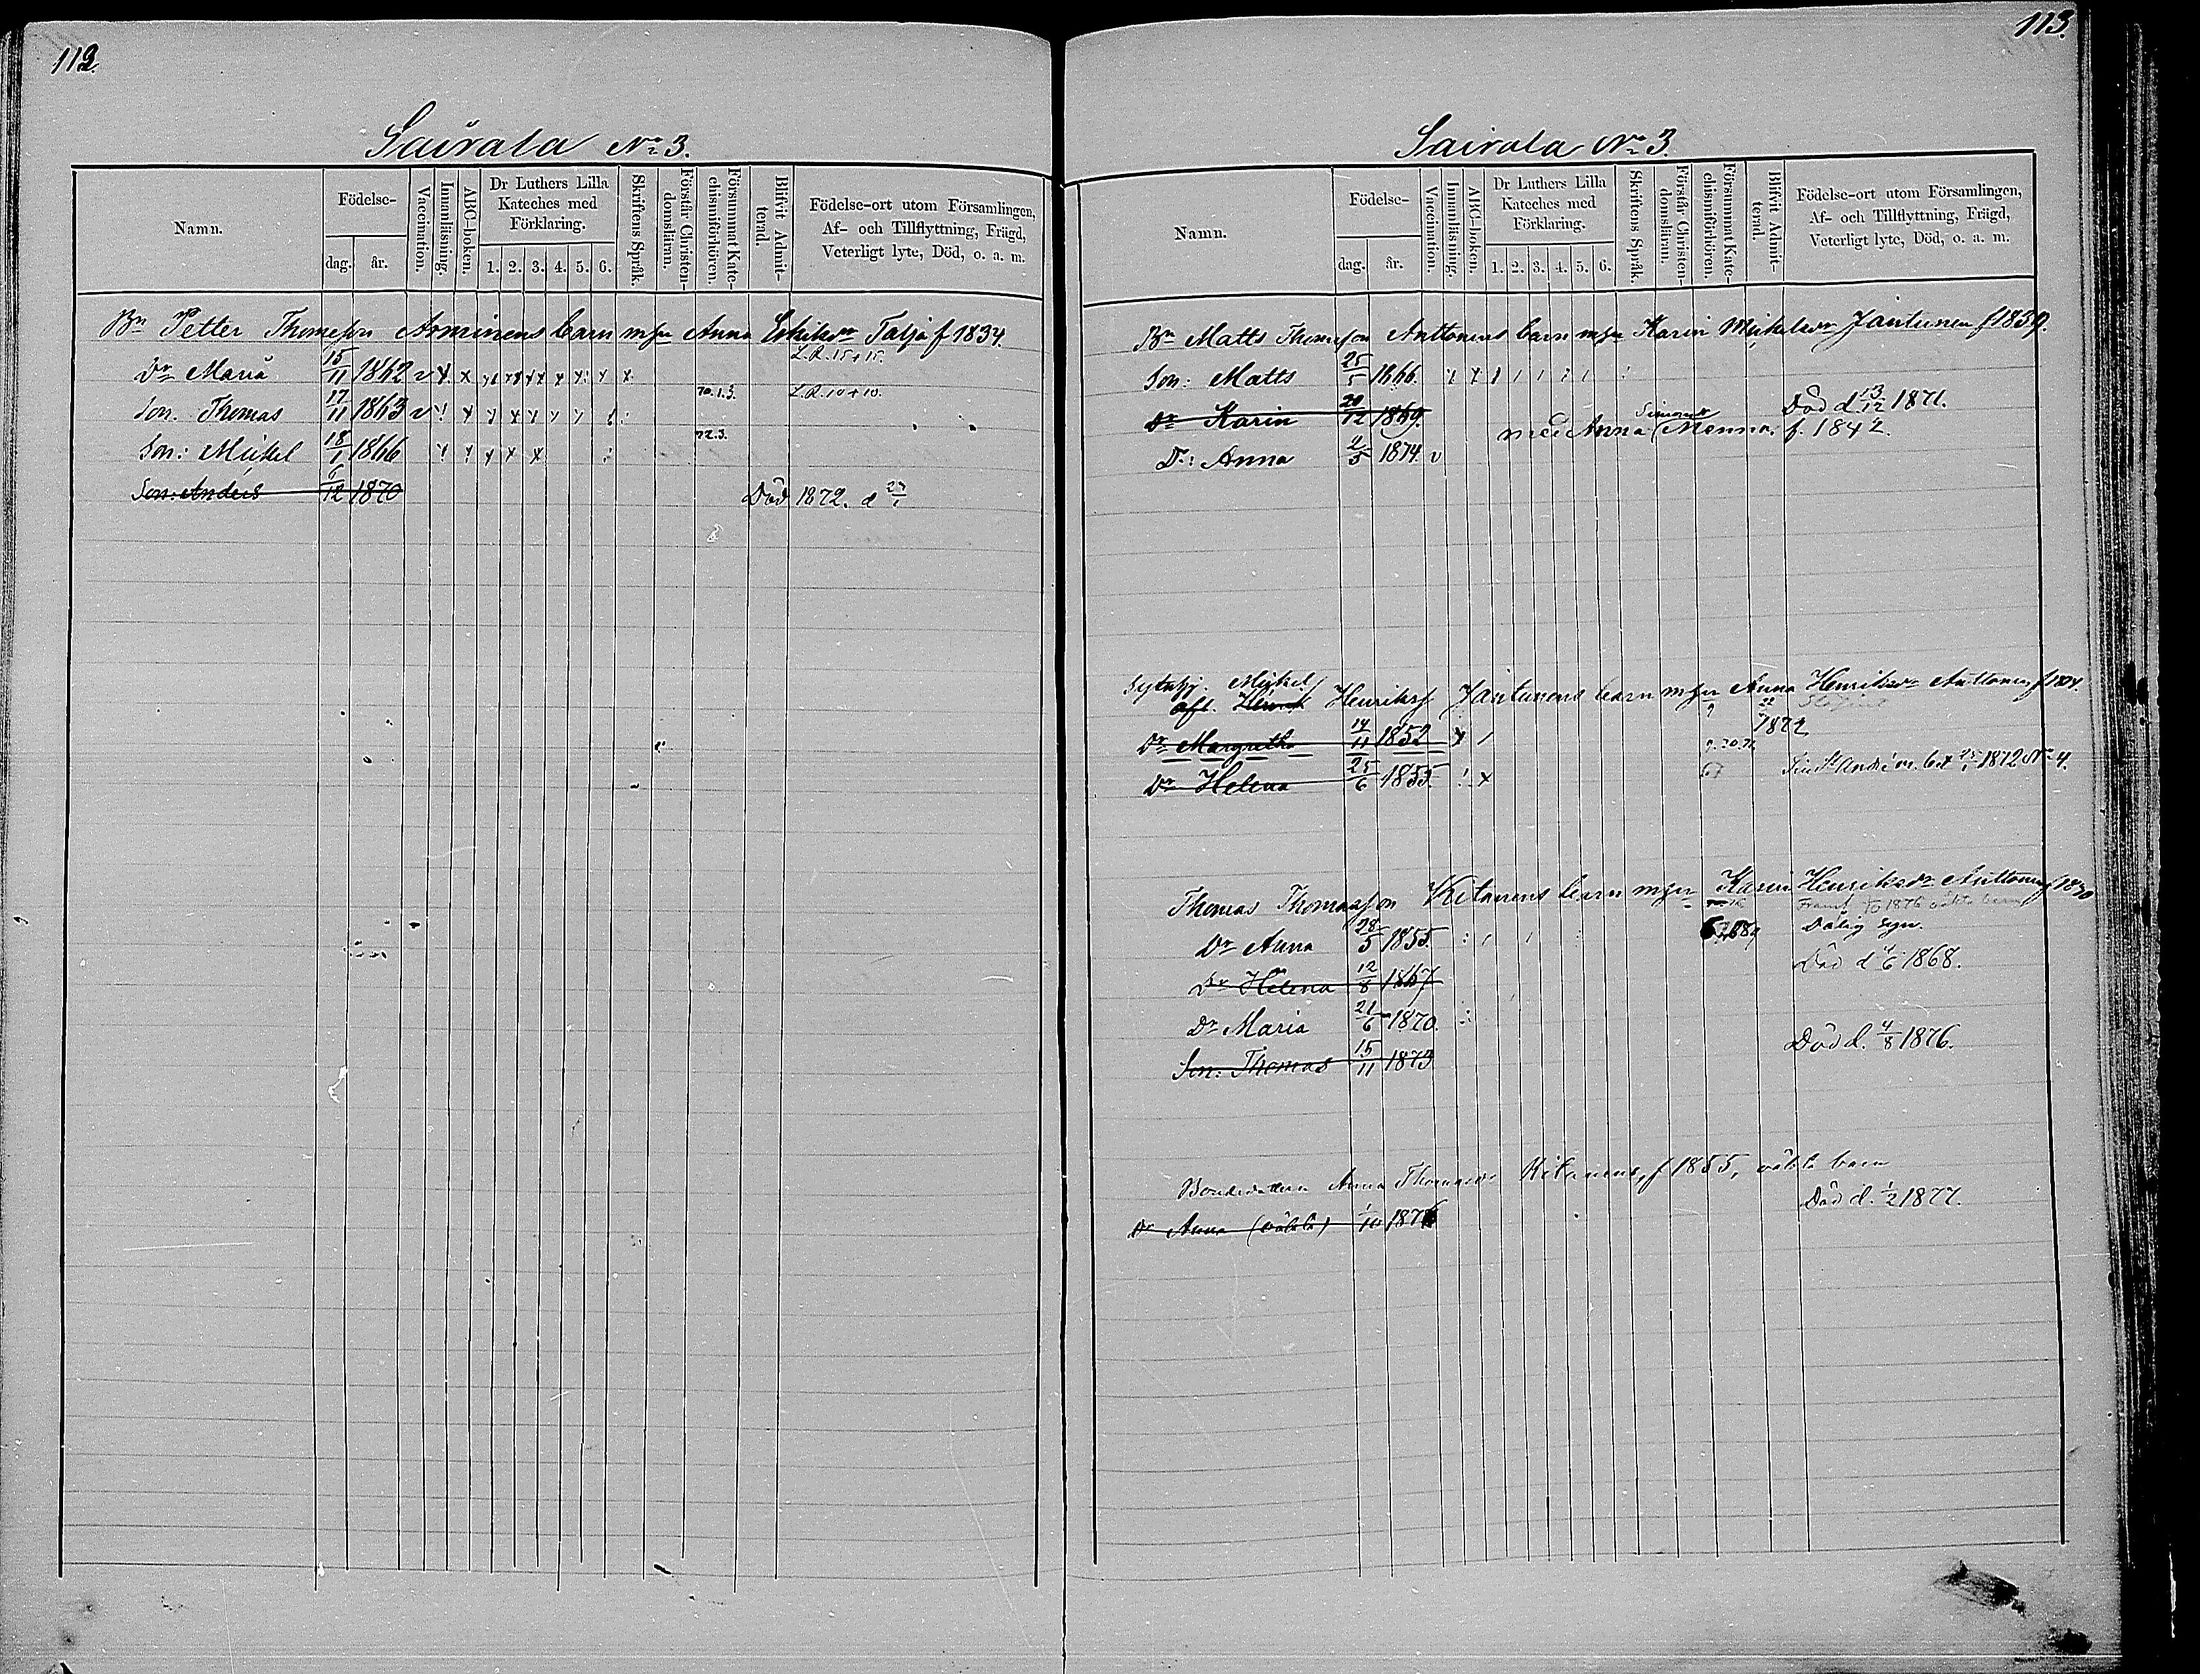 112.
Sairala No 3.
Namn.
Födelse-
dag. år.
Vaccination.
Innanläsning.
ABC-boken.
Dr Luthers Lilla Kateches med Förklaring.
1. 2. 3. 4. 5. 6.
Skriftens Språk.
Förstår Christendomsläran.
Försummat Katechismiförhören.
Blifvit Admitterad.
Födelse-ort utom Församlingen,
Af- och Tillflyttning, Frägd,
Veterligt lyte, Död, o. a. m.
Bn Petter Thomesson barn m hu Anna Talja f 1834.
L.R. 15+15.
Dr Maria 15/11 1862 v
70.1.3. L.R. 10+10.
Son. Thomas 17/11 1863 v
72.3.
Son: Mickel 18/1 1866
Son: Anders 6/12 1870 Död 1872. d
113.
Sairala No 3.
Namn.
Födelse-
dag. år.
Vaccination.
Innanläsning.
ABC-boken.
Dr Luthers Lilla Kateches med Förklaring.
1. 2. 3. 4. 5. 6.
Skriftens Språk.
Förstår Christendomsläran.
Försummat Katechismiförhören.
Blifvit Admitterad.
Födelse-ort utom Församlingen,
Af- och Tillflyttning, Frägd,
Veterligt lyte, Död, o. a. m.
Bn Matts Thomesson Anttonens barn m hu Karin Mickelsdr Jantunen f 1839.
Son: Matts 25/5 1866.
Dr Karin 20/12 1869. Död d. 13/12 1871.
med Anna Simonsdr Monna. f. 1842.
Dr: Anna 2/5 1874. v
Mickel
Henrik Henrikss Jantunens barn m hu Anna Henriksdr Anttonen
1872
Dr Margretha 14/11 1852
Dr Helena 25/6 1855. 67 1872 No 4.
Thomas Thomasson Kitunens barn m hu Karin Henriksdr Anttonen f 1830
Dr Anna 28/5 1855. Dålig syn.
Dr Helena 12/8 1867 Död d 4/6 1868.
Dr Maria 21/6 1870.
Son: Thomas 15/11 1873 Död d. 4/8 1876.
Bondedottern Anna Thomasdr Kitunens, f 1855, oäkta barn
Dr Anna (oäkta) 1/10 1876 Död d. 1/2 1877.